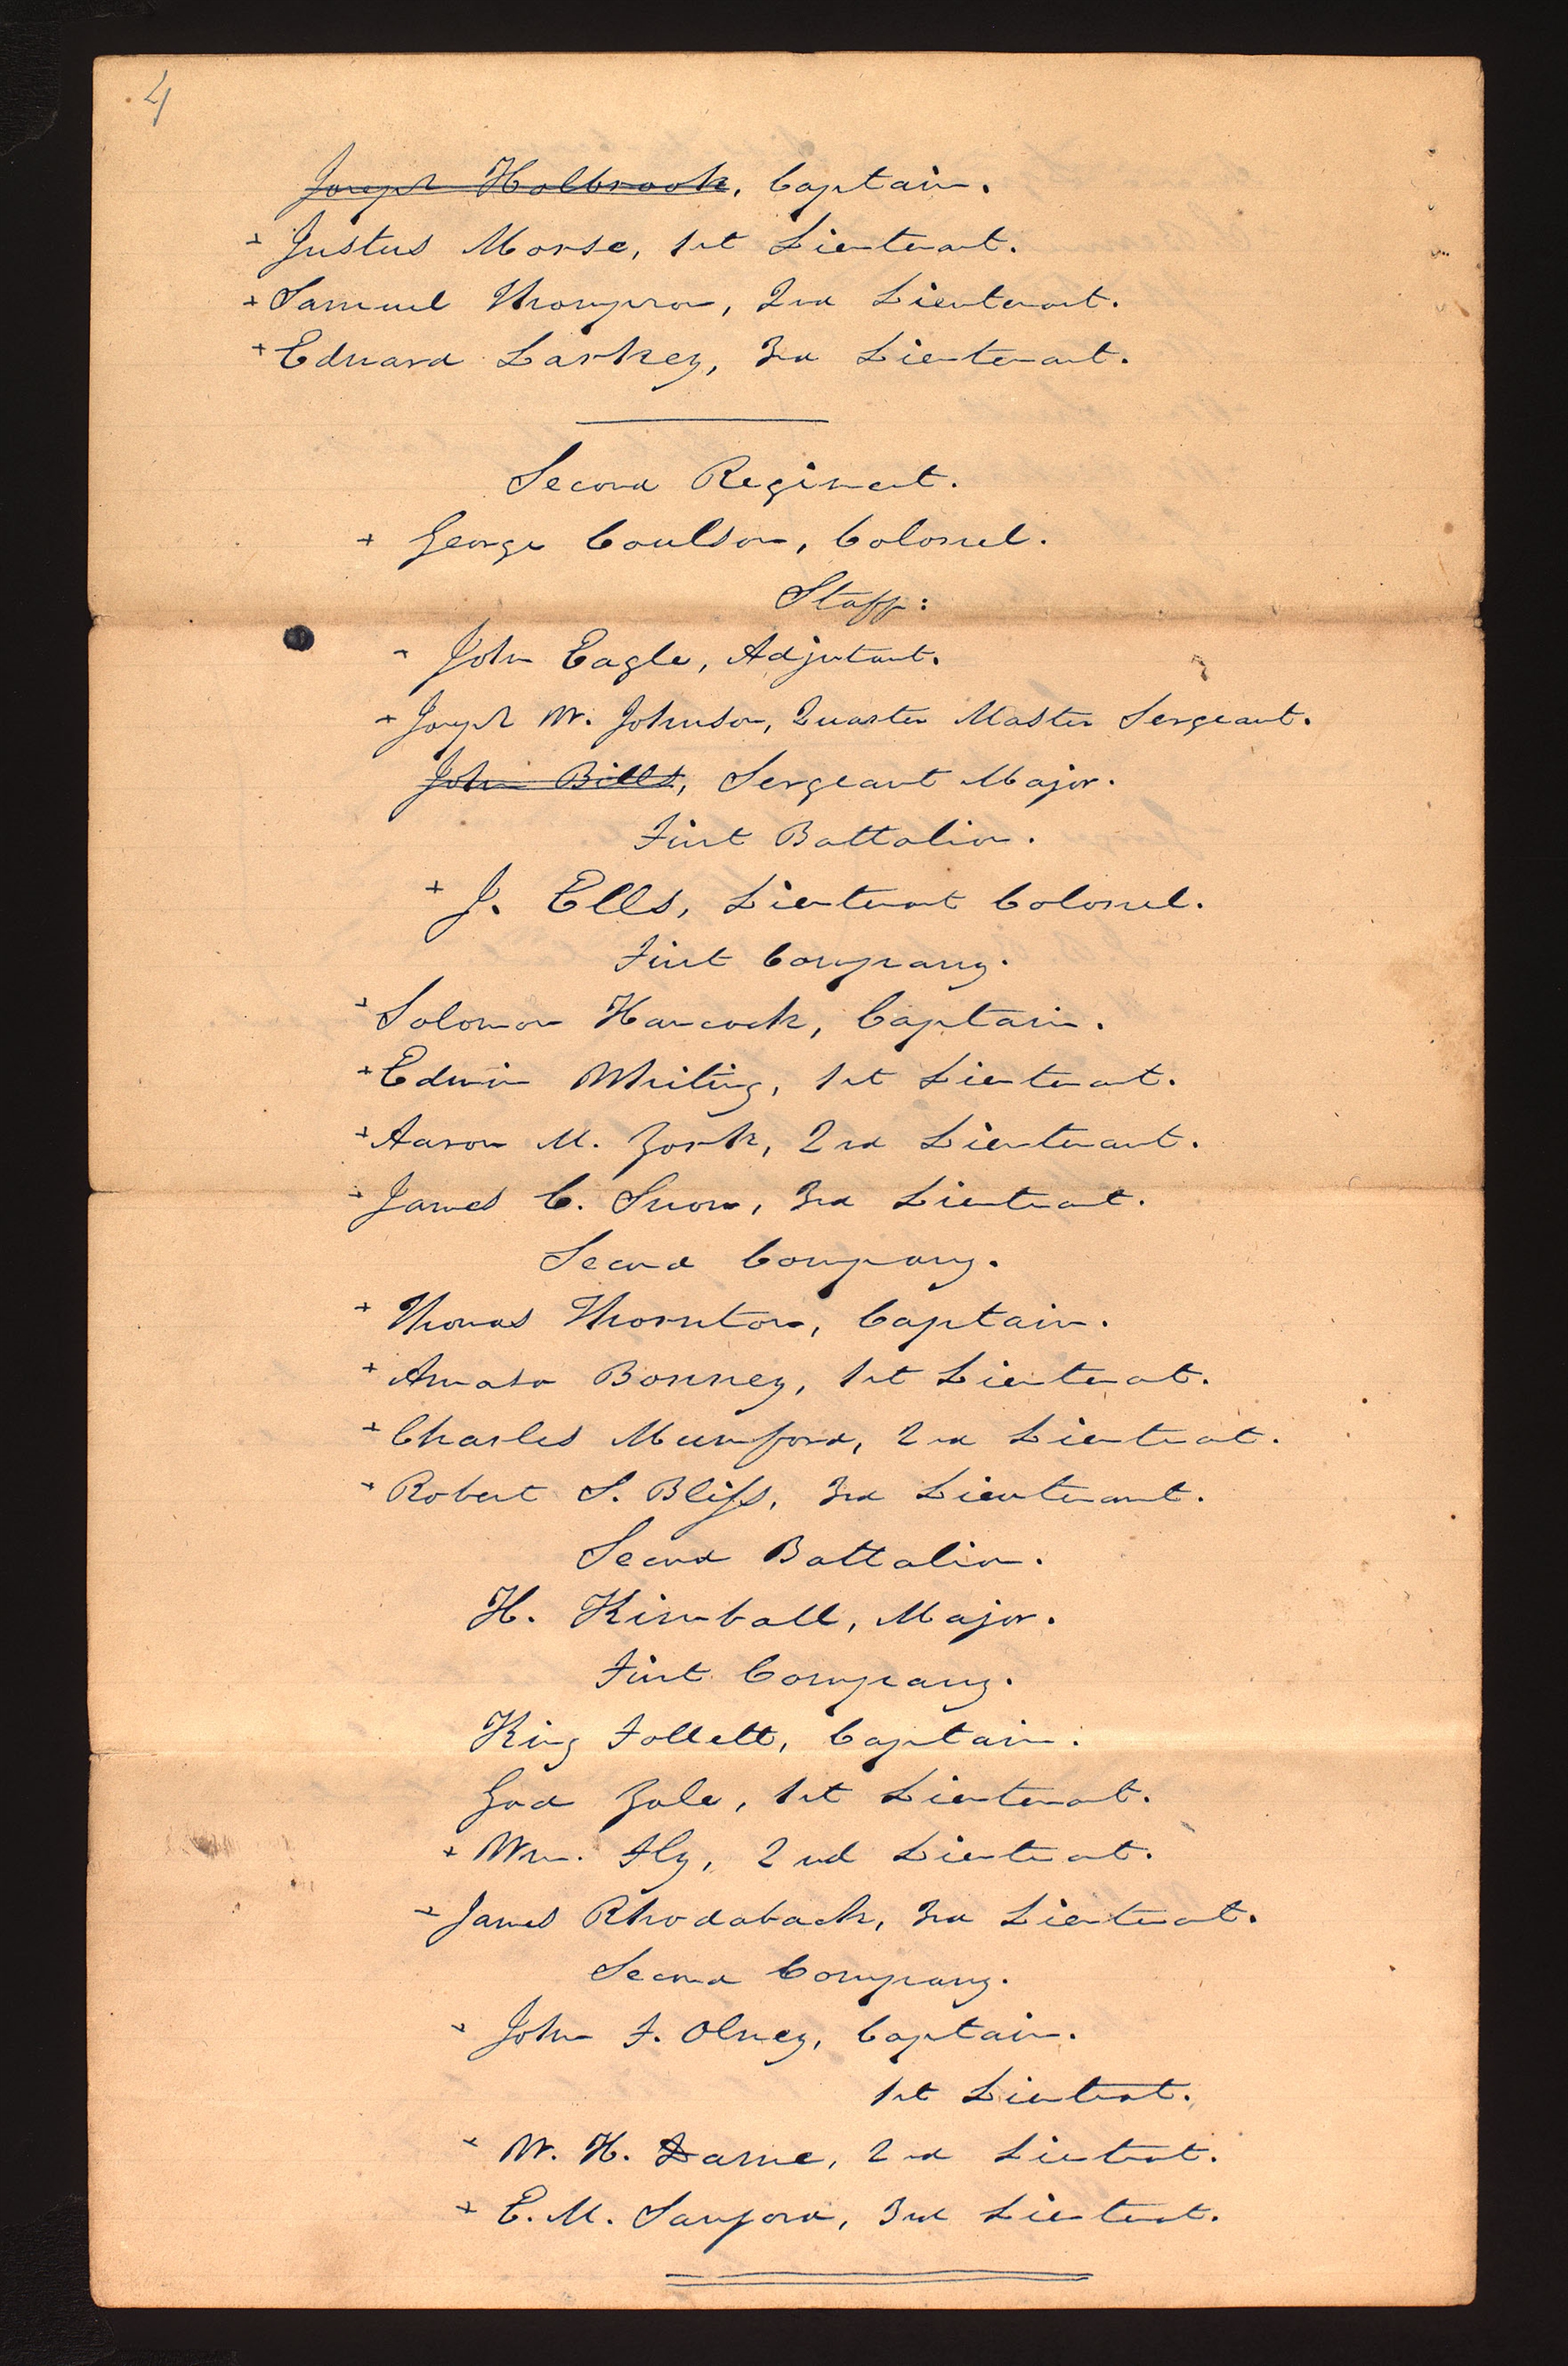 4
Joseph Holbrook, Captain.
+ Justus Morse, 1st Lieutenant.
+ Samuel Thompson, 2nd Lieutenant.
+ Edward Larkey, 3rd Lieutenant.
Second Regiment.
+ George Coulson, Colonel.
Staff:
+ John Eagle, Adjutant.
+ Joseph W. Johnson, Quarter Master Sergeant.
John Bills, Sergeant Major.
First Battalion.
+ J. Ells, Lieutenant Colonel.
First Company.
+ Solomon Hancock, Captain.
+ Edwin Whiting, 1st Lieutenant.
+ Aaron M. York, 2nd Lieutenant.
+ James C. Snow, 3rd Lieutenant.
Second Company.
+ Thomas Thornton, Captain.
+ Amasa Bonney, 1st Lieutenant.
+ Charles Mumford, 2nd Lieutenant.
+ Robert S. Bliss, 3rd Lieutenant.
Second Battalion.
H. Kimball, Major.
First Company.
King Follett, Captain.
Gad Yale, 1st Lieutenant.
+ Wm. Fly, 2nd Lieutenant.
+ James Rhodaback, 3rd Lieutenant.
Second Company.
+ John F. Olney, Captain.
1st Lieutenant.
+ W. H. Dame, 2nd Lieutenant.
+ E. M. Sanford, 3rd Lieutenant.